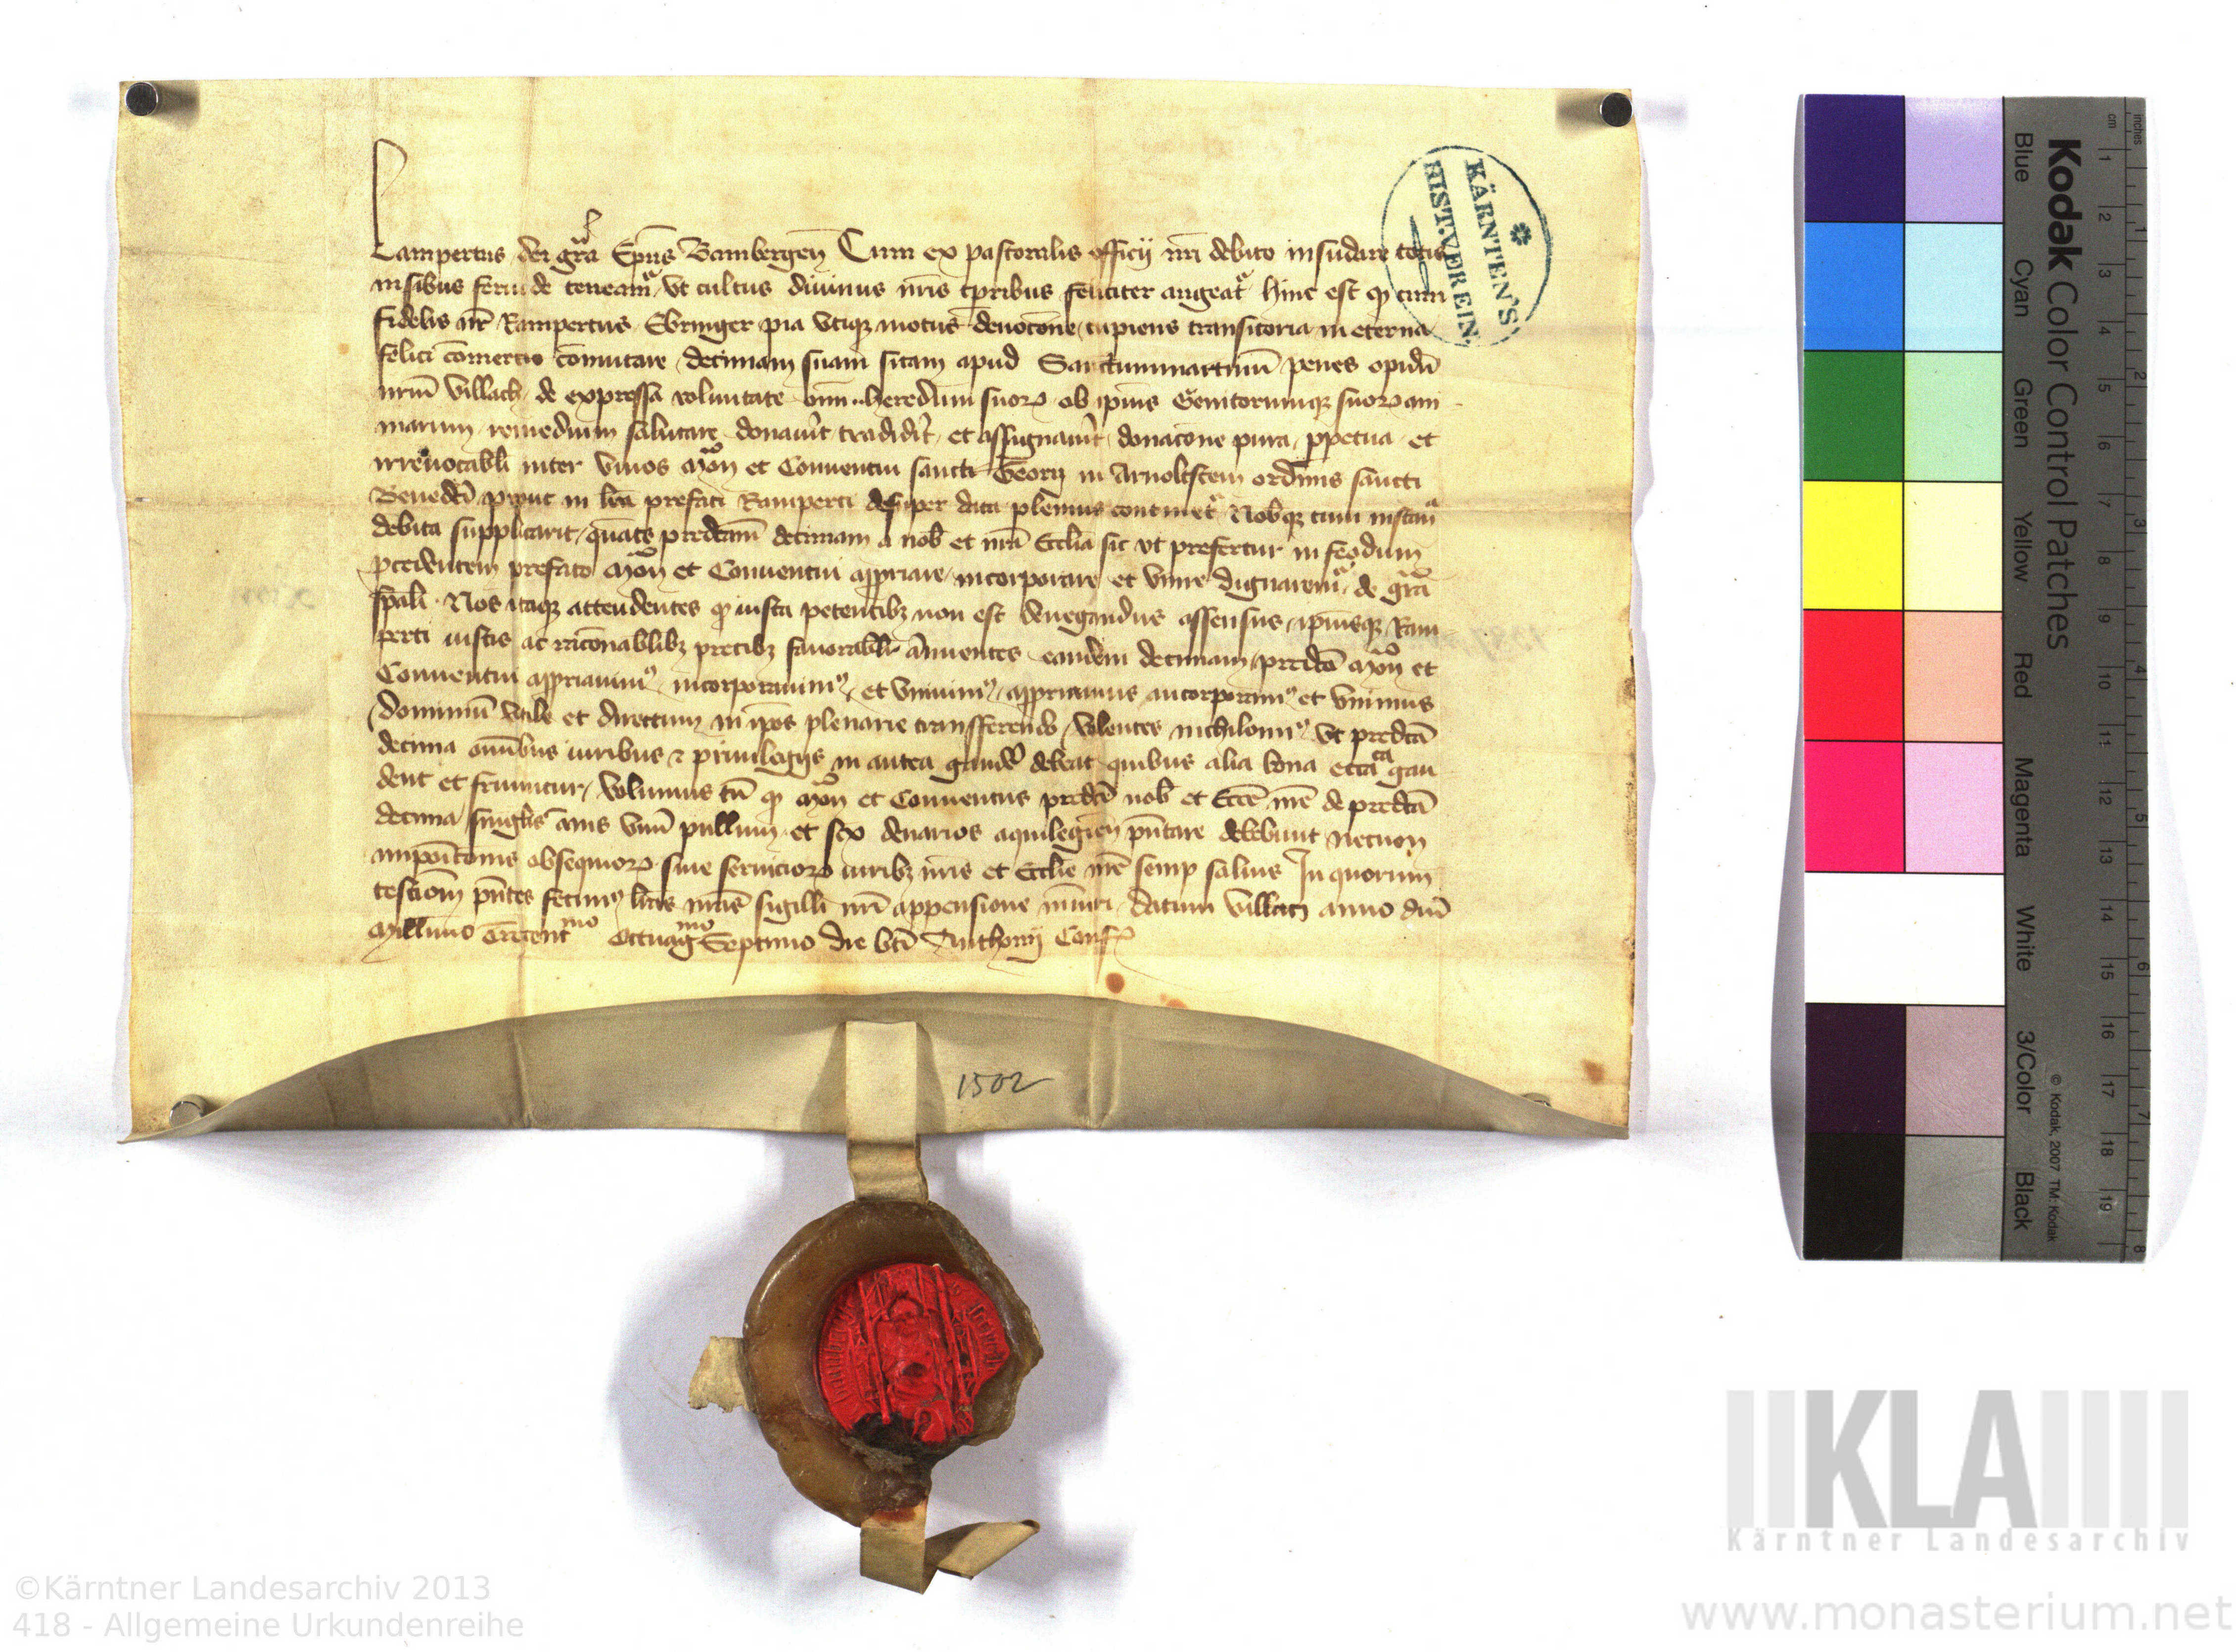 Lampertus dei gra Epus Bambergen Cum ex pastoralis officij nri debito insudare totis
nisibus feruide teneamur vt cultus diuinus nris tpribus feliciter augeatur hinc est q cum
fidelis nr Rampertus Ebringer pia vtiqz motus deuocone cupiens transitoria in eterna
felici comercio comutare decimam suam sitam apud Sanctummartinu penes opidu
nrm Villach de expressa voluntate omi heredum suorz ob ipius Genitorumqz suorz ani
marum remedium salutare donauit tradidit et assignauit donacone pura ppetua et
irreuocabli inter viuos Mon et Conuentui sancti Georij in Arnoltstein ordinis sancti
Benedci prout in lra prefati Ramperti desuper data plenius continet Nobqz cum instan
debita supplicarit quats predcam decimam a nob et nra Ecclia sic vt prefertur in feodum
pcedentem prefato Mon et Conuentui appriare incorporare et vnire dignarem de gra
spali Nos itaqz attendentes q iusta petentibz non est denegandus assensus ipiusqz Ram
perti iustis ac raconablibz precibz fauorablr annuentes eandem decimam predco Mon et
Conuentui appriauim incorporauim et vniuim appriamus incorporam et vnimus
dominiu vtile et directum in ipos plenarie transferendo volentes nichilomi vt predca
decima omibus iuribus et priuilegijs in antea gaudere debeat quibus alia bona eccca gau
dent et fruuntur Volumus tn q Mon et Conuentus predce nob et Ecce nre de predca
decima singlis anis vnu pullum et sex denarios aquilegien pntare debebunt necnon
impoicionis obsequiorz siue seruiciorz iuribz nris et Ecclie nre semp saluis In quorum
testiom pntes fecim lras nras sigilli nri appensione muiri datum Villaci anno dni
Millimo Trecentmo Octuagmo Septimo die bti Anthonij Conf
KÄRNTEN'S
HIST. VEREIN
1502
Kodak Color Control Patches
Blue Cyan Green Yellow Red Magenta White 3/Color Black
© Kodak, 2007 TM: Kodak
cm 1 2 3 4 5 6 7 8 9 10 11 12 13 14 15 16 17 18 19
inches 1 2 3 4 5 6 7 8
KLA
Kärntner Landesarchiv
©Kärntner Landesarchiv 2013
418 - Allgemeine Urkundenreihe
www.monasterium.net